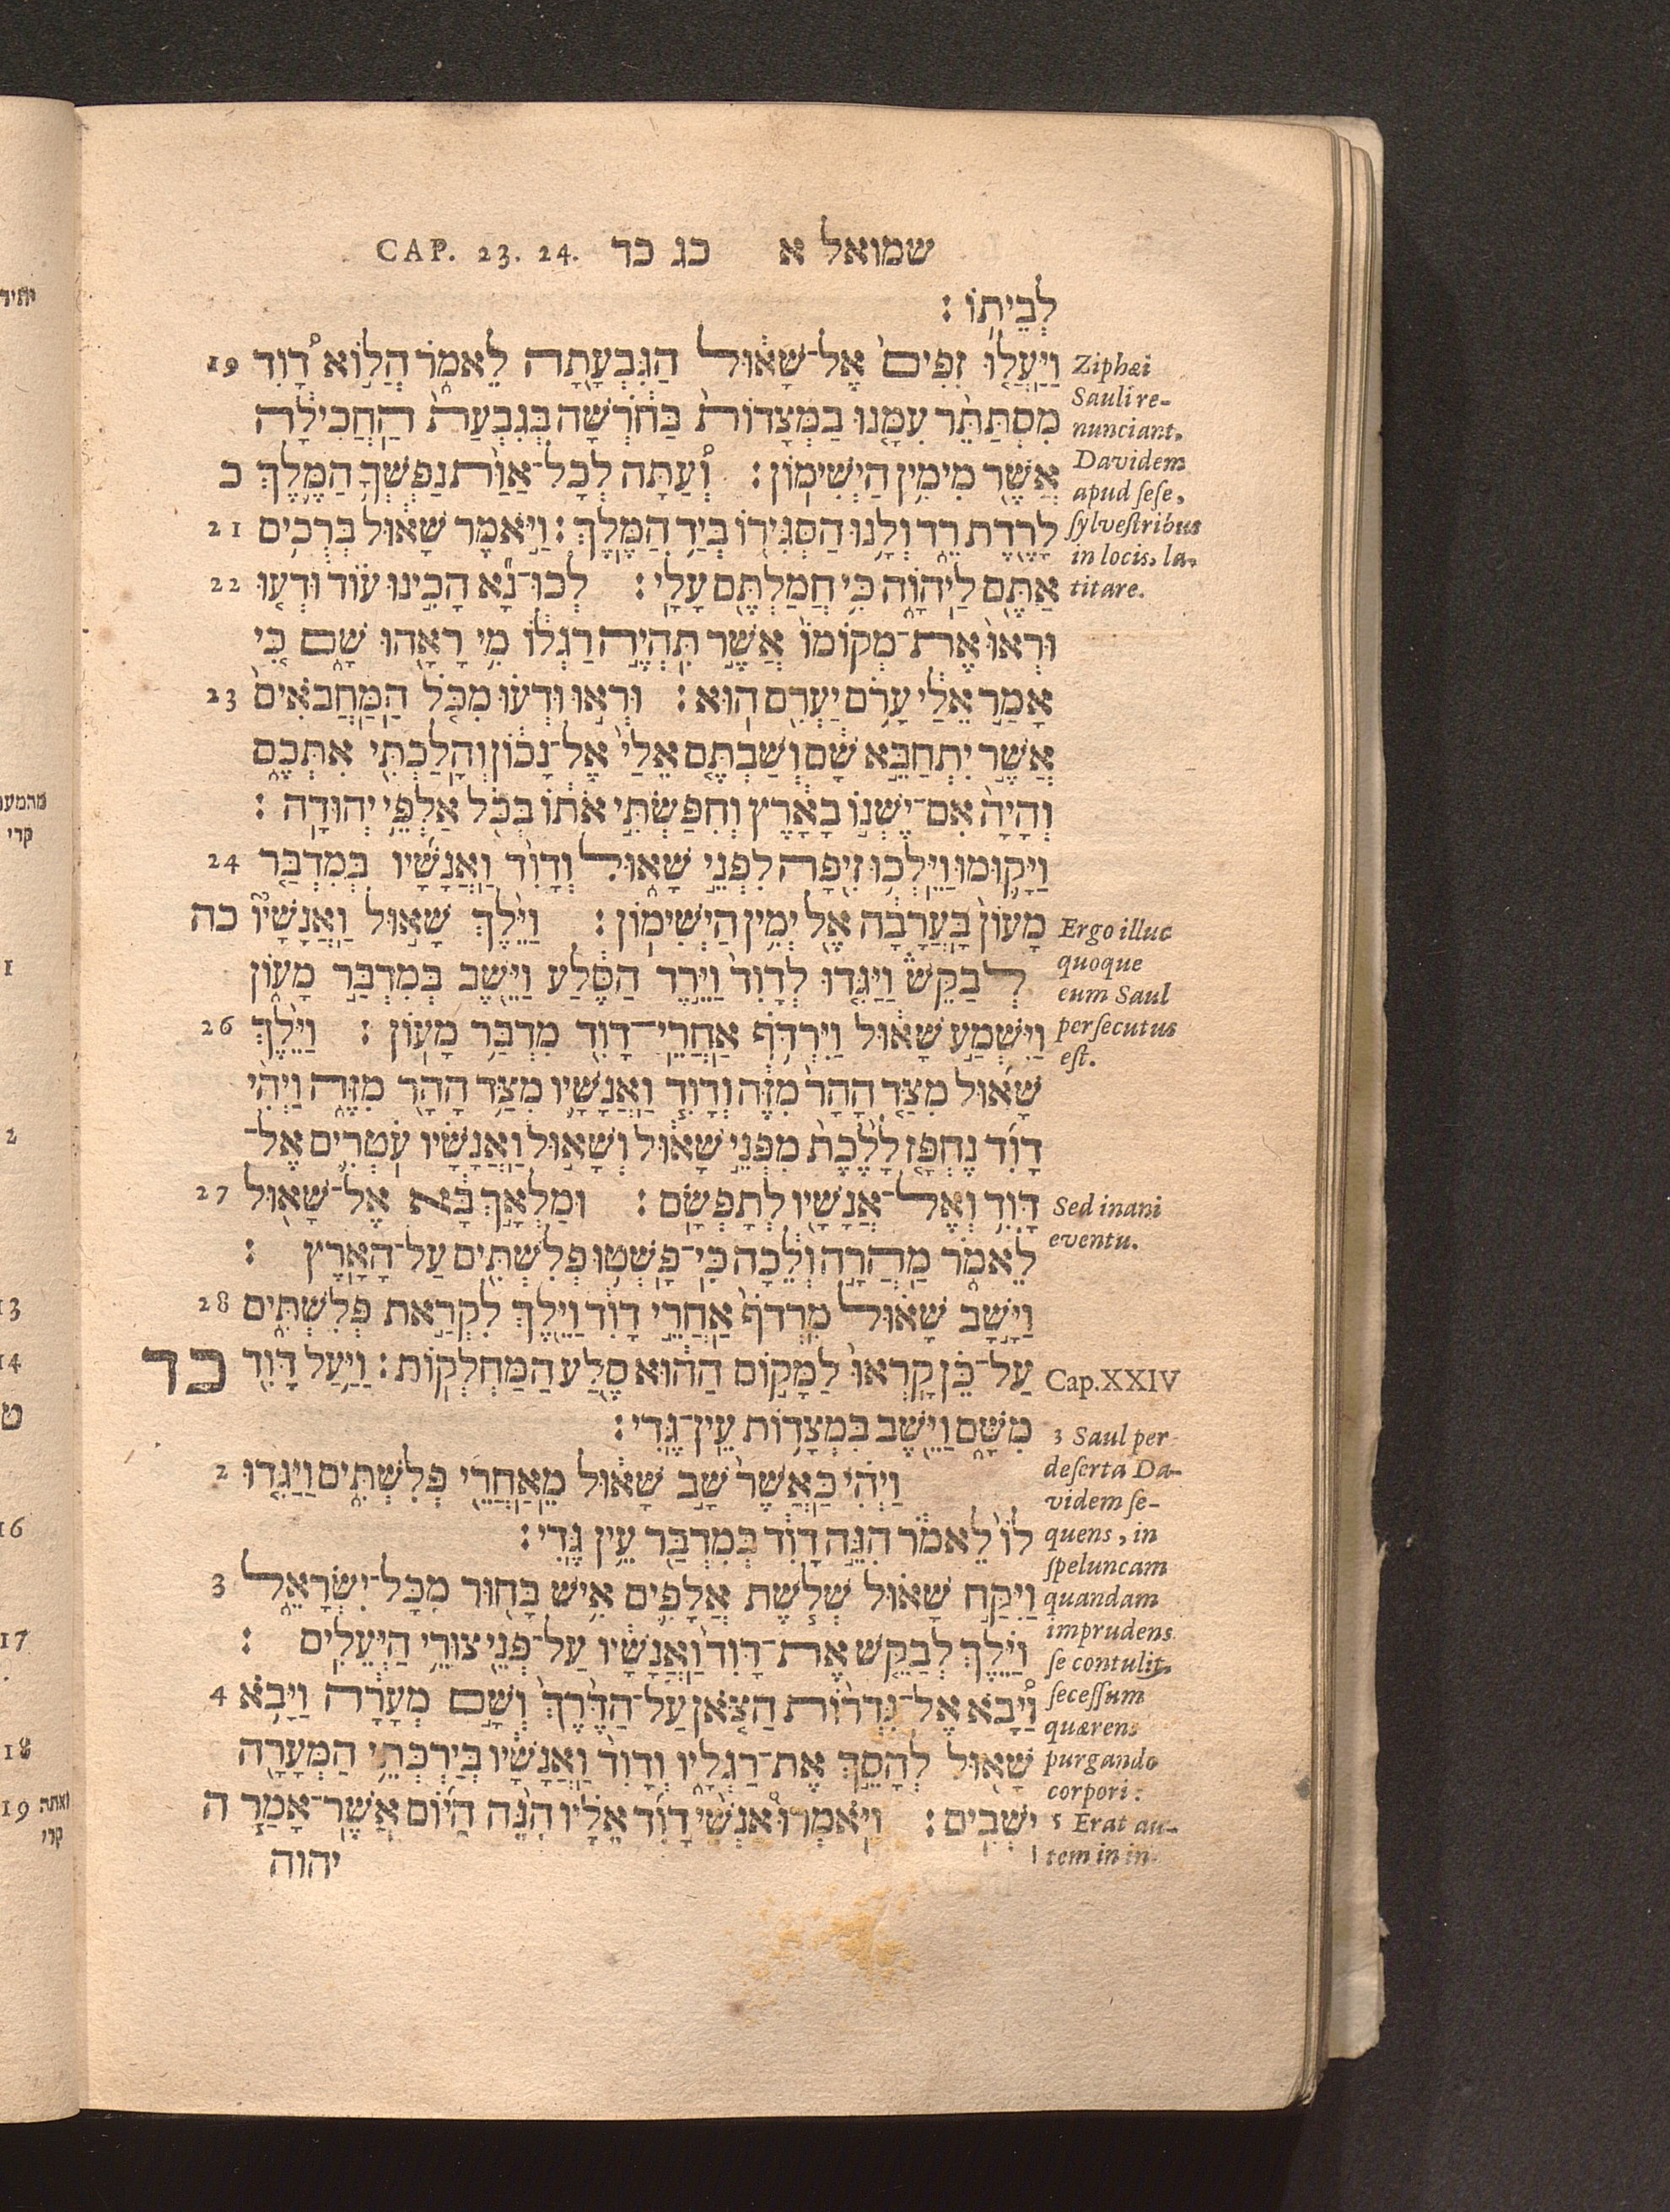 שמואל א כג כד CAP. 23. 24.
לְבֵיתֽוֹ׃
19 וַיַּעֲל֤וּ זִפִים֙ אֶל־שָׁא֔וּל הַגִּבְעָ֖תָה לֵאמֹ֑ר הֲל֣וֹא דָ֠וִד
מִסְתַּתֵּ֨ר עִמָּ֤נוּ בַמְּצָדוֹת֙ בַּחֹ֔רְשָׁה בְּגִבְעַת֙ הַֽחֲכִילָ֔ה
אֲשֶׁ֖ר מִימִ֥ין הַיְשִׁימֽוֹן׃ וְ֠עַתָּה לְכָל־אַוַּ֨ת נַפְשְׁךָ֥ הַמֶּ֛לֶךְ כ
לָרֶ֖דֶת רֵ֑ד וְלָ֥נוּ הַסְגִּיר֖וֹ בְּיַ֥ד הַמֶּֽלֶךְ׃ וַיֹּ֣אמֶר שָׁא֔וּל בְּרֻכִ֥ים 21
אַתֶּ֖ם לַֽיהוָ֑ה כִּ֥י חֲמַלְתֶּ֖ם עָלָֽי׃ לְכוּ־נָ֞א הָכִ֣ינוּ ע֗וֹד וּדְע֤וּ 22
וּרְאוּ֙ אֶת־מְקוֹמוֹ֙ אֲשֶׁ֣ר תִּֽהְיֶ֣ה רַגְל֔וֹ מִ֥י רָאָ֖הוּ שָׁ֑ם כִּ֚י
אָמַ֣ר אֵלַ֔י עָר֥ם יַעְרִ֖ם הֽוּא׃ וּרְא֣וּ וּדְע֗וּ מִכֹּ֤ל הַמַּֽחֲבֹאִים֙ 23
אֲשֶׁ֣ר יִתְחַבֵּ֣א שָׁ֔ם וְשַׁבְתֶּ֤ם אֵלַי֙ אֶל־נָכ֔וֹן וְהָלַכְתִּ֖י אִתְּכֶ֑ם
וְהָיָה֙ אִם־יֶשְׁנ֣וֹ בָאָ֔רֶץ וְחִפַּשְׂתִּ֣י אֹת֔וֹ בְּכֹ֖ל אַלְפֵ֥י יְהוּדָֽה׃
וַיָּק֛וּמוּ וַיֵּלְכ֥וּ זִ֖יפָה לִפְנֵ֣י שָׁא֑וּל וְדָוִ֨ד וַאֲנָשָׁ֜יו בְּמִדְבַּ֤ר 24
מָעוֹן֙ בָּעֲרָבָ֔ה אֶ֖ל יְמִ֥ין הַיְשִׁימֽוֹן׃ וַיֵּ֨לֶךְ שָׁא֣וּל וַֽאֲנָשָׁיו֮ כה
לְבַקֵּשׁ֒ וַיַּגִּ֤דוּ לְדָוִד֙ וַיֵּ֣רֶד הַסֶּ֔לַע וַיֵּ֖שֶׁב בְּמִדְבַּ֣ר מָע֑וֹן
וַיִּשְׁמַ֣ע שָׁא֔וּל וַיִּרְדֹּ֥ף אַחֲרֵֽי־דָוִ֖ד מִדְבַּ֥ר מָעֽוֹן׃ וַיֵּ֨לֶךְ 26
שָׁא֜וּל מִצַּ֤ד הָהָר֙ מִזֶּ֔ה וְדָוִ֧ד וַאֲנָשָׁ֛יו מִצַּ֥ד הָהָ֖ר מִזֶּ֑ה וַיְהִ֨י
דָוִ֜ד נֶחְפָּ֤ז לָלֶ֙כֶת֙ מִפְּנֵ֣י שָׁא֔וּל וְשָׁא֣וּל וַאֲנָשָׁ֗יו עֹֽטְרִ֛ים אֶל־
דָּוִ֥ד וְאֶל־אֲנָשָׁ֖יו לְתָפְשָֽׂם׃ וּמַלְאָ֣ךְ בָּ֔א אֶל־שָׁא֖וּל 27
לֵאמֹ֑ר מַהֲרָ֣ה וְלֵ֔כָה כִּֽי־פָשְׁט֥וּ פְלִשְׁתִּ֖ים עַל־הָאָֽרֶץ׃
וַיָּ֣שָׁב שָׁא֗וּל מִרְדֹף֙ אַחֲרֵ֣י דָוִ֔ד וַיֵּ֖לֶךְ לִקְרַ֣את פְּלִשְׁתִּ֑ים 28
עַל־כֵּ֗ן קָֽרְאוּ֙ לַמָּק֣וֹם הַה֔וּא סֶ֖לַע הַֽמַּחְלְקֽוֹת׃ וַיַּ֥עַל דָּוִ֖ד כד
מִשָּׁ֑ם וַיֵּ֖שֶׁב בִּמְצָד֥וֹת עֵֽין־גֶּֽדִי׃
וַיְהִ֗י כַּאֲשֶׁר֙ שָׁ֣ב שָׁא֔וּל מֵאַחֲרֵ֖י פְּלִשְׁתִּ֑ים וַיַּגִּ֤דוּ 2
לוֹ֙ לֵאמֹ֔ר הִנֵּ֣ה דָוִ֔ד בְּמִדְבַּ֖ר עֵ֥ין גֶּֽדִי׃
וַיִּקַּ֣ח שָׁא֗וּל שְׁלֹ֧שֶׁת אֲלָפִ֛ים אִ֥ישׁ בָּח֖וּר מִכָּל־יִשְׂרָאֵ֑ל 3
וַיֵּ֗לֶךְ לְבַקֵּ֤שׁ אֶת־דָּוִד֙ וַאֲנָשָׁ֔יו עַל־פְּנֵ֖י צוּרֵ֥י הַיְּעֵלִֽים׃
וַ֠יָּבֹא אֶל־גִּדְר֨וֹת הַצֹּ֤אן עַל־הַדֶּ֙רֶךְ֙ וְשָׁ֣ם מְעָרָ֔ה וַיָּבֹ֥א 4
שָׁא֖וּל לְהָסֵ֣ךְ אֶת־רַגְלָ֑יו וְדָוִד֙ וַאֲנָשָׁ֔יו בְּיַרְכְּתֵ֥י הַמְּעָרָ֖ה
יֹשְׁבִֽים׃ וַיֹּאמְרוּ֩ אַנְשֵׁ֨י דָוִ֜ד אֵלָ֗יו הִנֵּ֨ה הַיּ֜וֹם אֲשֶׁר־אָמַ֧ר ה
יהוה
Ziphæi
Sauli re-
nunciant,
Davidem
apud sese,
sylvestribus
in locis, la-
titare.
Ergo illuc
quoque
eum Saul
persecutus
est.
Sed inani
eventu.
Cap. XXIV
3 Saul per
deserta Da-
videm se-
quens, in
speluncam
quandam
imprudens
se contulit,
secessum
quærens
purgando
corpori:
5 Erat au-
tem in in-
יחיד
מהמע
קרי
1
2
13
14
ט
16
17
18
19 ואתה
קרי